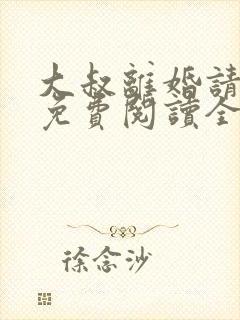 大叔離婚請
免費閱讀全
徐念沙